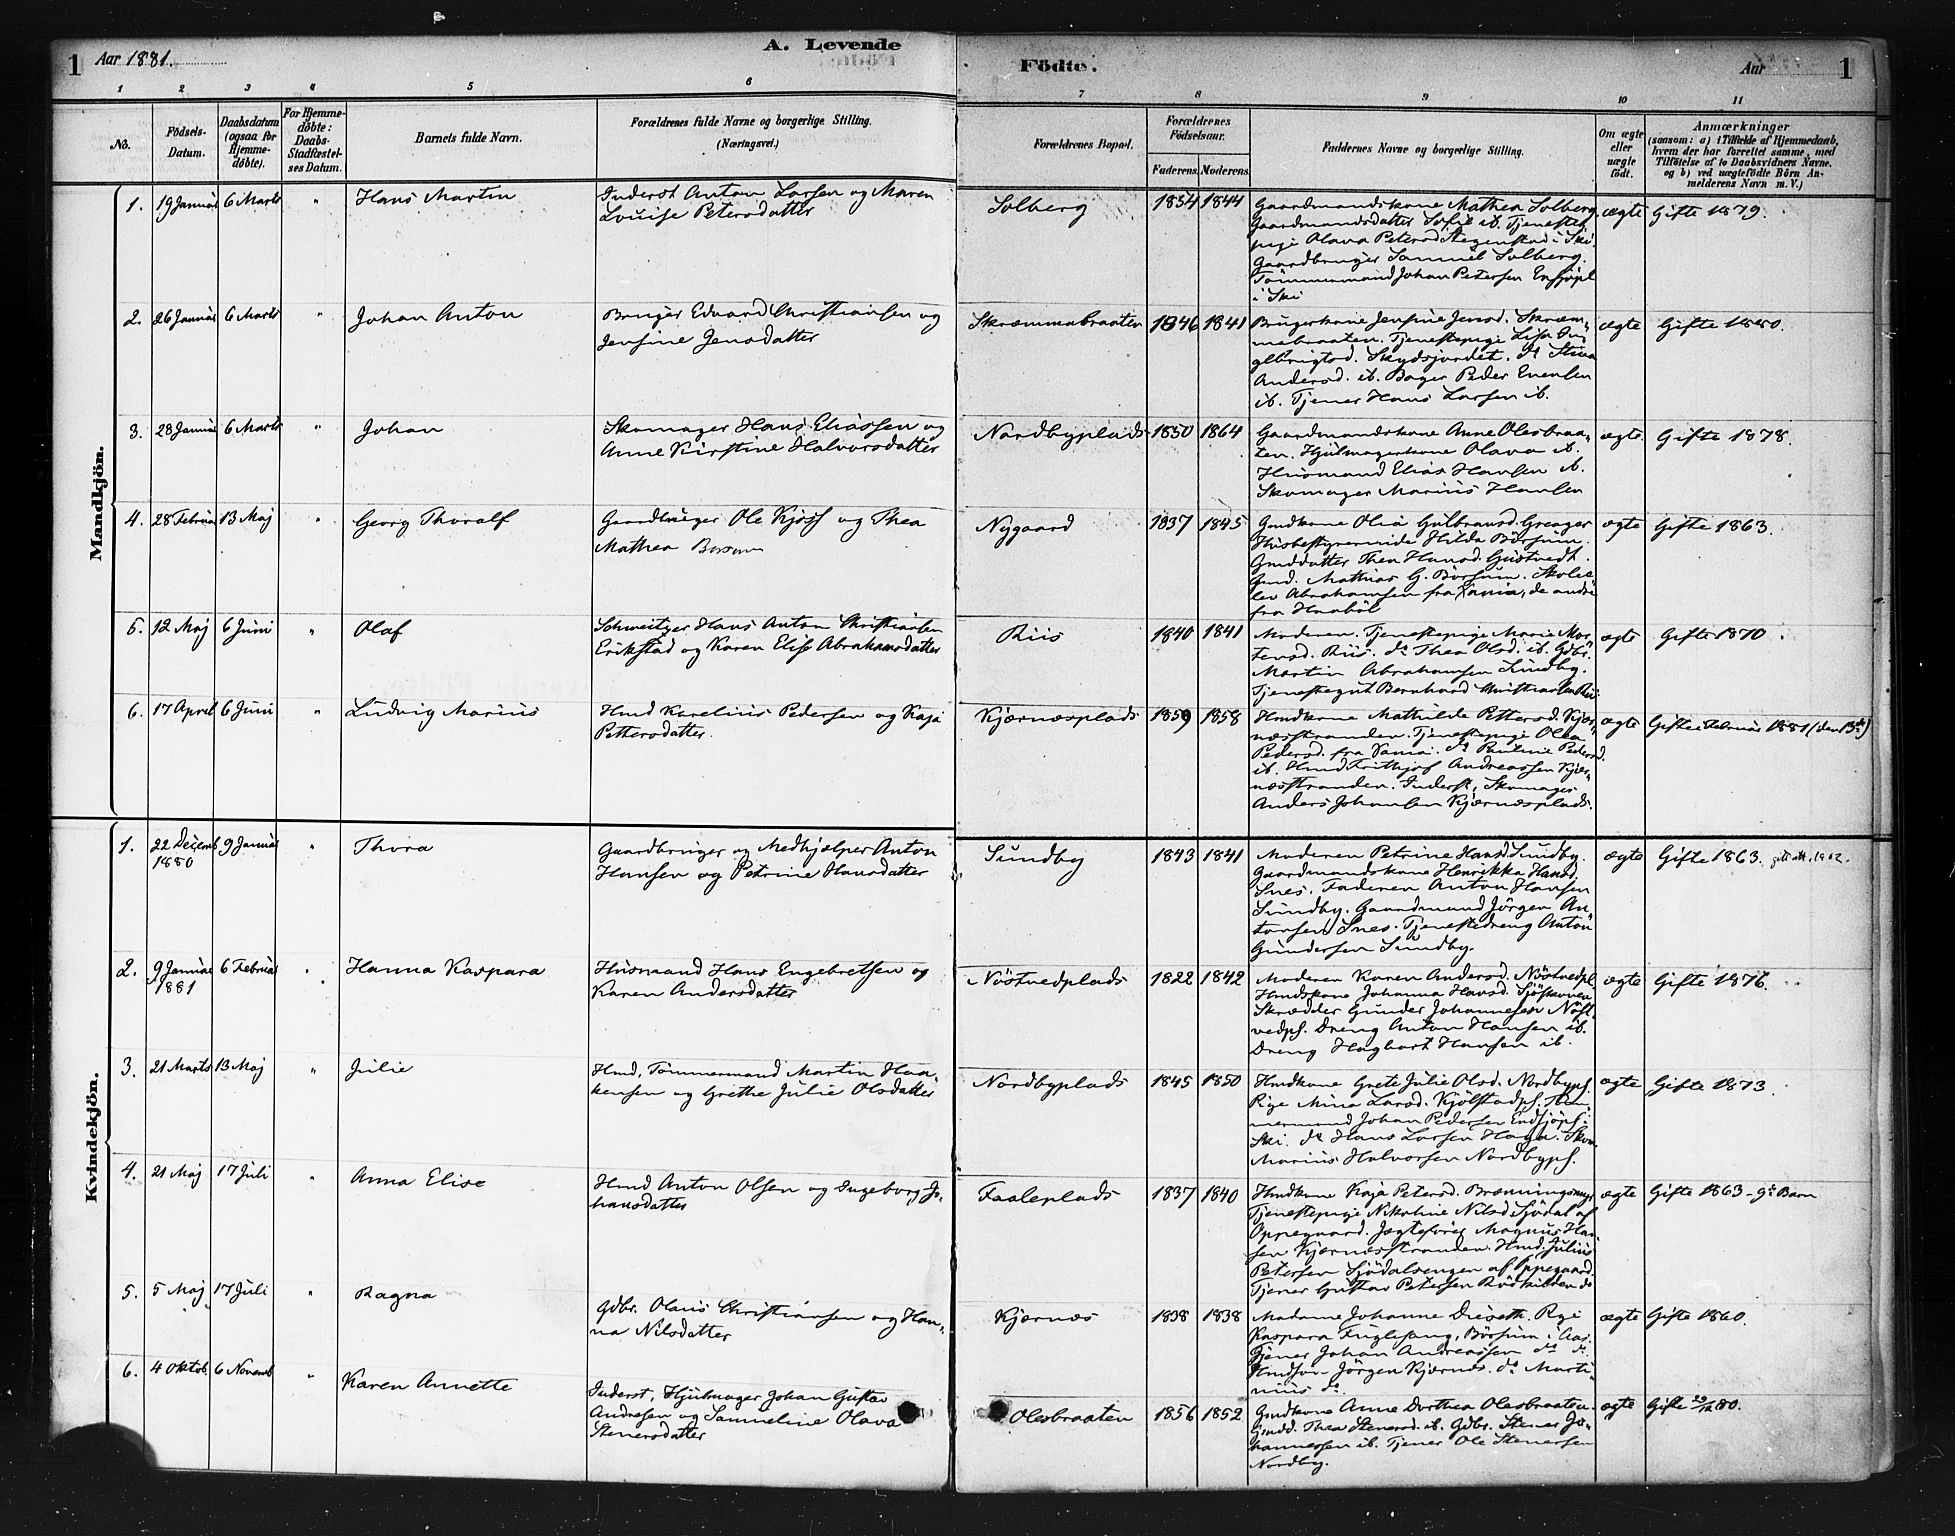 1 Aar 1881. A. Levende
Födte. Aar 1
1 2 3 4 5 6 7 8 9 10 11
No.
Födsels-
Datum.
Daabsdatum
(ogsaa for
Hjemme-
döbte).
For Hjemme-
döbte:
Daabs-
Stadfæstel-
ses Datum.
Barnets fulde Navn.
Forældrenes fulde Navne og borgerlige Stilling.
(Næringsvei.)
Forældrenes Bopæl.
Forældrenes
Födselsaar.
Faderens. Moderens.
Faddernes Navne og borgerlige Stilling.
Om ægte
eller
uægte
födt.
Anmærkninger
(saasom: a) i Tilfælde af Hjemmedaab,
hvem der har forrettet samme, med
Tilföielse af to Daabsvidners Navne,
og b) ved uægtefödte Börn An-
melderens Navn m. V.)
Mandkjön.
1. 19 Januar 6 Marts " Hans Martin
Inderst Anton Larsen og Maren
Louise Petersdatter
Solberg 1854 1844
Gaardmandskone Mathea Solberg.
Gaardmandsdatter Sofie ib. Tjeneste-
pige Olava Petersd Stegenstad i Ski
Gaardbruger Samuel Solberg.
Tömmermand Johan Petersen
i Ski
ægte Gifte 1879.
2. 26 Januar 6 Marts " Johan Anton
Bruger Edvard Christiansen og
Jensine Jensdatter
Skrømmabraaten 1846 1841
Brugerkone Jensine Jensd. Skræm-
mebraaten. Tjenestepige Lise In-
gebrigtsd. Skydsjordet. do Stina
Andersd. ib. Bager Peder Evensen
ib. Tjener Hans Larsen ib.
ægte Gifte 1880.
3. 28 Januar 6 Marts " Johan
Skomager Hans Eliassen og
Anne Kirstine Halvorsdatter
Nordbyplads 1850 1864
Gaardmandskone Anne Olesbraa-
ten. Hjulmagerkone Olava ib.
Husmand Elias Hansen ib.
Skomager Marius Hansen
ægte. Gifte 1878.
4. 28 Februar 13 Maj " Georg Thoralf
Gaardbruger Ole Kjöss og Thea
Mathea
Nygaard 1837 1845
Gmdkone Olia Gulbrandsd. Greager
Husbestyrerinde Hilda Börsum.
Gmddatter Thea Hansd. Gustvedt.
Gmd. Mathias G. Börsum. Skole-
lev Abrahamsen fra Xania, de andre
fra Haaböl
ægte Gifte 1863.
5. 12 Maj 6 Juni " Olaf
Schweitzer Hans Anton Christiansen
Erikstad og Karen Elise Abrahamsdatter
Riis 1840 1841
Moderen. Tjenestepige Marie Mor-
tensd. Riis. do Thea Olsd. ib. Gdbr.
Martin Abrahamsen Sundby.
Tjenestegut Bernhard Christiansen Riis
ægte Gifte 1870.
6. 17 April 6 Juni " Ludvig Marius
Hmd Karelius Pedersen og Kaja
Pettersdatter.
Kjærnæsplads 1859 1858
Hmdkone Mathilde Pettersd. Kjær-
næsstranden. Tjenestepige Olea
Pedersd. fra Xania. do Pauline Pedersd.
ib. Hmd Frithjof Andreassen Kjær-
næsstranden. Inderst, Skomager
Anders Johansen Kjærnæsplads.
ægte Gifte i Februar 1881 (den 13de)
Kvindekjön.
1. 22 Decemb 9 Januar " Thora
1880
Gaardbruger og Medhjælper Anton
Hansen og Petrine Hansdatter
Sundby 1843 1841
Moderen Petrine Hansd Sundby.
Gaardmandskone Henrikka Hansd.
Snes. Faderen Anton Hansen
Sundby. Gaardmand Jörgen An-
tonsen Snes. Tjenestedreng Anton
Gundersen Sundby.
ægte Gifte 1863.
2. 9 Januar 6 Februar " Hanna Kaspara
1881
Husmand Hans Engebretsen og
Karen Andersdatter
Nöstvedplads 1822 1842
Moderen Karen Andersd. Nöstvedpl
Hmdskone Johanna Hansd. Sjöskoven
Skrædder Gunder Johannesen Nöst-
vedpl. Dreng Anton Hansen ib.
Dreng Hagbart Hansen ib.
ægte Gifte 1876.
3. 21 Marts 13 Maj " Julie
Hmd, Tömmermand Martin Haa-
kensen og Grethe Julie Olsdatter
Nordbyplads 1845 1850
Hmdkone Grete Julie Olsd. Nordbypl.
Pige Mina Larsd. Kjölstadpl. Töm-
mermand Johan Pedersen
Ski. do Hans Larsen Haga. Skom.
Marius Halvorsen Nordbypl.
ægte Gifte 1873
4. 21 Maj 17 Juli " Anna Elise
Hmd Anton Olsen og Ingeborg Jo-
hansdatter
Faaleplads 1837 1840
Hmdkone Kaja Petersd. Brænningsmyr
Tjenestepige Nikoline Nilsd Sjödal af
Oppegaard. Jægtefører Magnus Han-
sen Kjærnæsstranden. Hmd. Julius
Petersen Sjödalsengen af Oppegaard.
Tjener Gustav Petersen
ægte Gifte 1863 - 9e Barn
5. 5 Maj 17 Juli " Ragna
Gdbr. Olaus Christiansen og Han-
na Nilsdatter
Kjærnæs 1838 1838
Madame Johanne Pige
Kaspara Fuglesang, Börsum i Aas.
Tjener Johan Andreassen do do.
Hmdsøn Jörgen Kjærnæs. do Marti-
nius do.
ægte Gifte 1860.
6. 4 Oktob. 6 Novemb " Karen Annette
Inderst, Hjulmager Johan Gustav
Andresen og Sammeline Olava
Stenersdatter
Olesbraaten 1856 1852
Gmdkone Anne Dorthea Olesbraaten.
Gmdd. Thea Stenersd. ib. Gdbr. Stener Jo-
hannessen ib. Tjener Ole Stenersen
Nordby.
ægte Gifte 29/12 80.